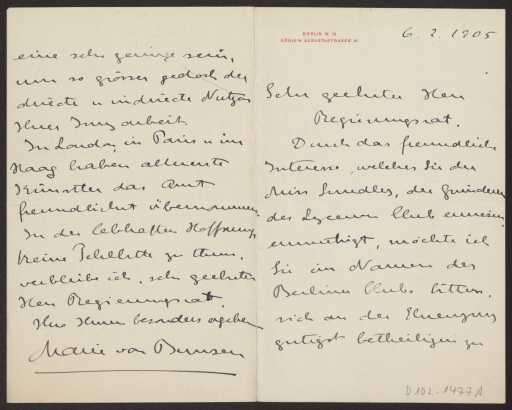 BERLIN W. 10
KÖNIGIN AUGUSTASTRASSE 41
6. 2. 1905
Sehr geehrter Herr
Regierungsrat.
Durch das freundliche
Interesse, welches Sie der
Miss Smedley, der Gründerin
des Lyceum Club erwiesen,
ermutigt, möchte ich
Sie im Namen des
Berliner Clubs bitten,
sich an der
gütigst betheiligen zu
D 102-1477 A
eine sehr geringe sein,
um so grösser jedoch der
directe u indirecte Nutzen
Ihrer
In London, in Paris u im
Haag haben allererste
Künstler das Amt
freundlichst übernommen.
In der lebhaften Hoffnung
keine zu thun,
verbleibe ich, sehr geehrter
Herr Regierungsrat,
Ihre Ihnen besonders ergebene
Marie von Bunsen